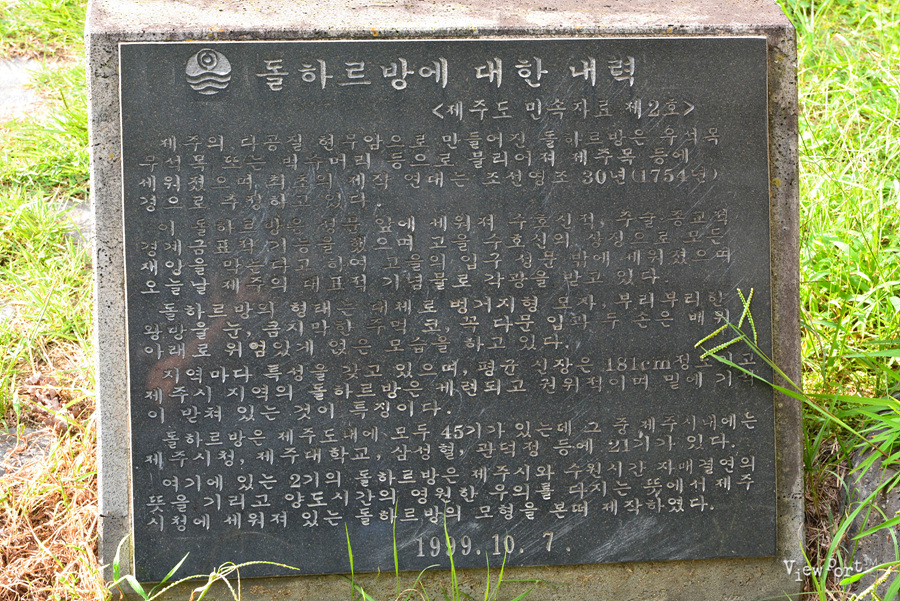 돌하르방에 대한 내력
<제주도 민속자료 제2호>
제주의 다공질 현무암으로 만들어진 돌하르방은 우석목
우석목 또는 벅수머리 등으로 불리어져 제주목 등에
세워졌으며, 최초의 제작 연대는 조선영조 30년(1754년)
경으로 추정하고 있다.
이 돌하르방은 성문 앞에 세워져 수호신적, 주술·종교적
경계금표적 기능을 했으며 고을 수호신의 상징으로 모든
재앙을 막는다고 하여 고을의 입구 성문 밖에 세워졌으며
오늘날 제주의 대표적 기념물로 각광을 받고 있다.
돌하르방의 형태는 대체로 벙거지형 모자, 부리부리한
왕방울 눈, 큼지막한 주먹 코, 꼭 다문 입과 두 손은 배위
아래로 위엄있게 얹은 모습을 하고 있다.
지역마다 특성을 갖고 있으며, 평균 신장은 181cm정도이고
제주시 지역의 돌하르방은 세련되고 권위적이며 밑에 기석
이 받쳐 있는 것이 특징이다.
돌하르방은 제주도내에 모두 45기가 있는데 그 중 제주시내에는
제주시청, 제주대학교, 삼성혈, 관덕정 등에 21기가 있다.
여기에 있는 2기의 돌하르방은 제주시와 수원시간 자매결연의
뜻을 기리고 양도시간의 영원한 우의를 다지는 뜻에서 제주
시청에 세워져 있는 돌하르방의 모형을 본떠 제작하였다.
1999. 10. 7.
ViewPort™